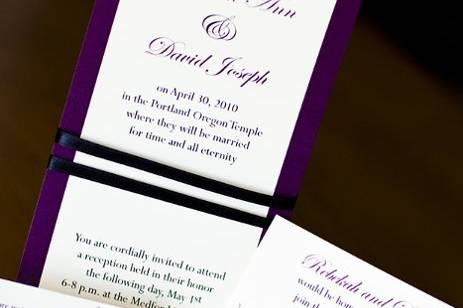 Ann
&
David Joseph
on April 30, 2010
in the Portland Oregon Temple
where they will be married
for time and all eternity
You are cordially invited to attend
a reception held in their honor
the following day, May 1st
6-8 p.m. at the Medford
Rebekah and
would be hono